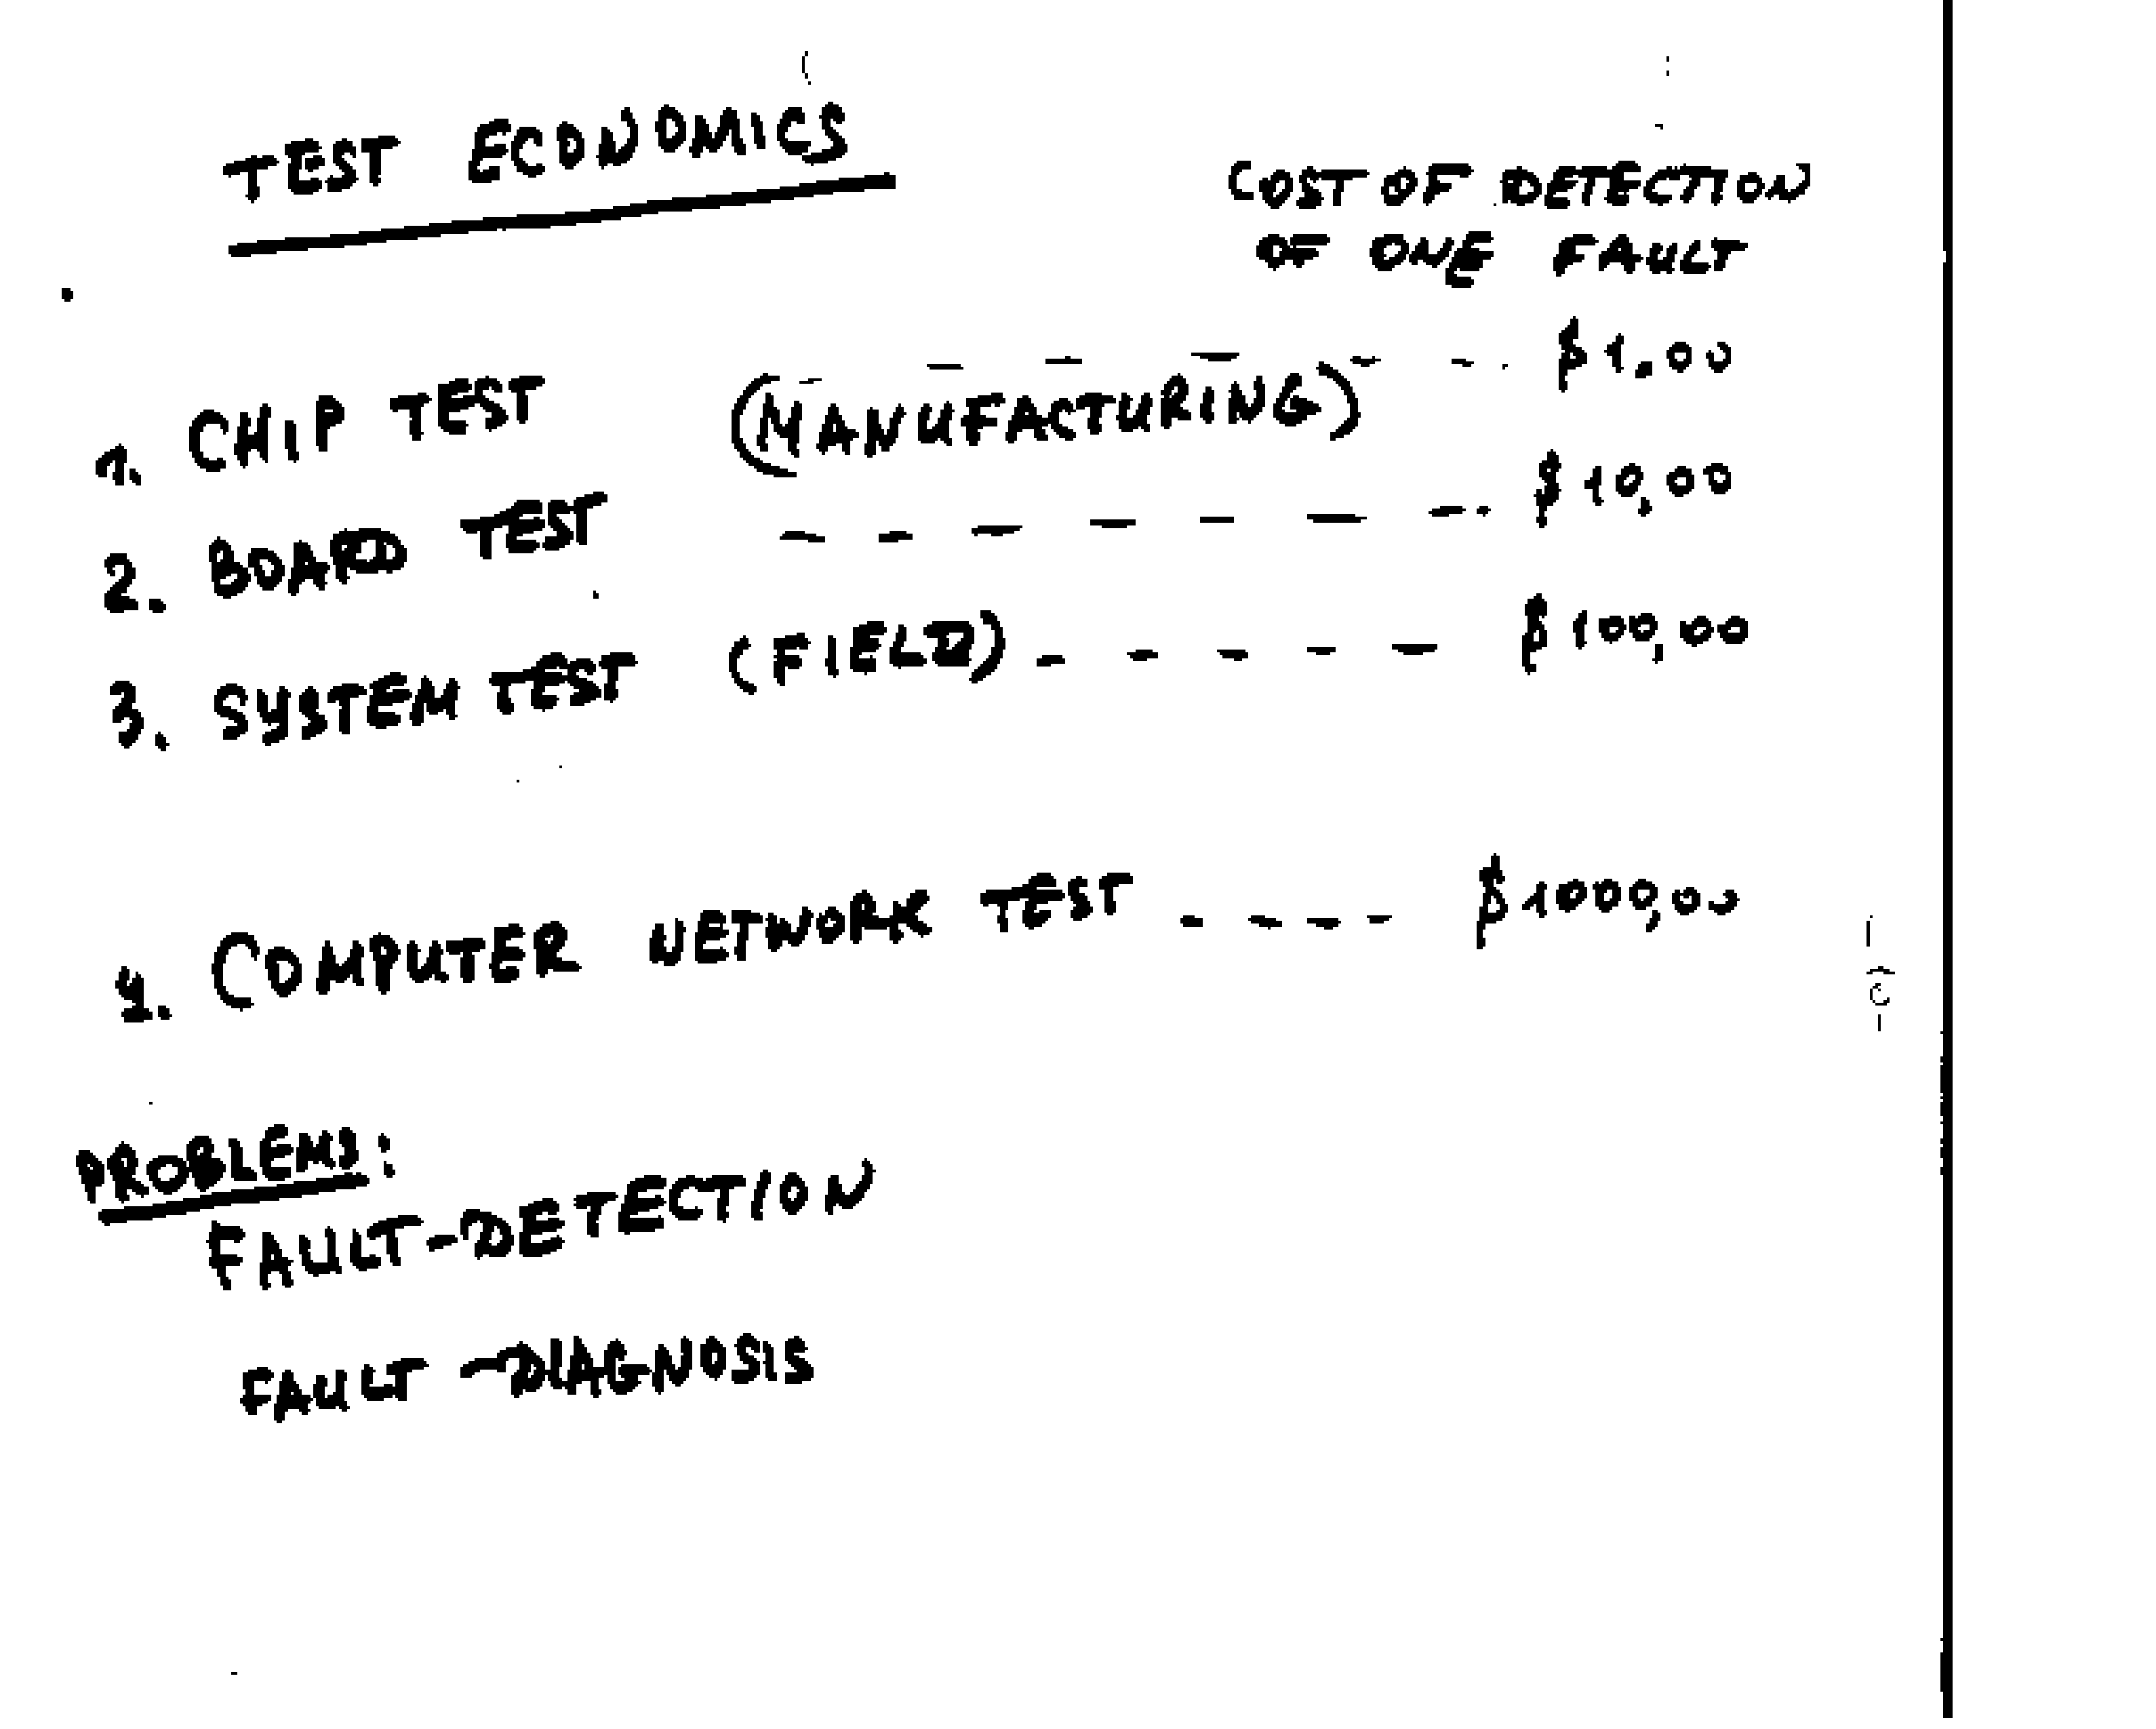 TEST ECONOMICS
COST OF DETECTION
OF ONE FAULT
1. CHIP TEST (MANUFACTURING) - - - - - - $1.00
2. BOARD TEST - - - - - - - - $10,00
3. SYSTEM TEST (FIELD) - - - - - $100,00
4. COMPUTER NETWORK TEST - - - - $1000,00
PROBLEMS:
FAULT-DETECTION
FAULT-DIAGNOSIS